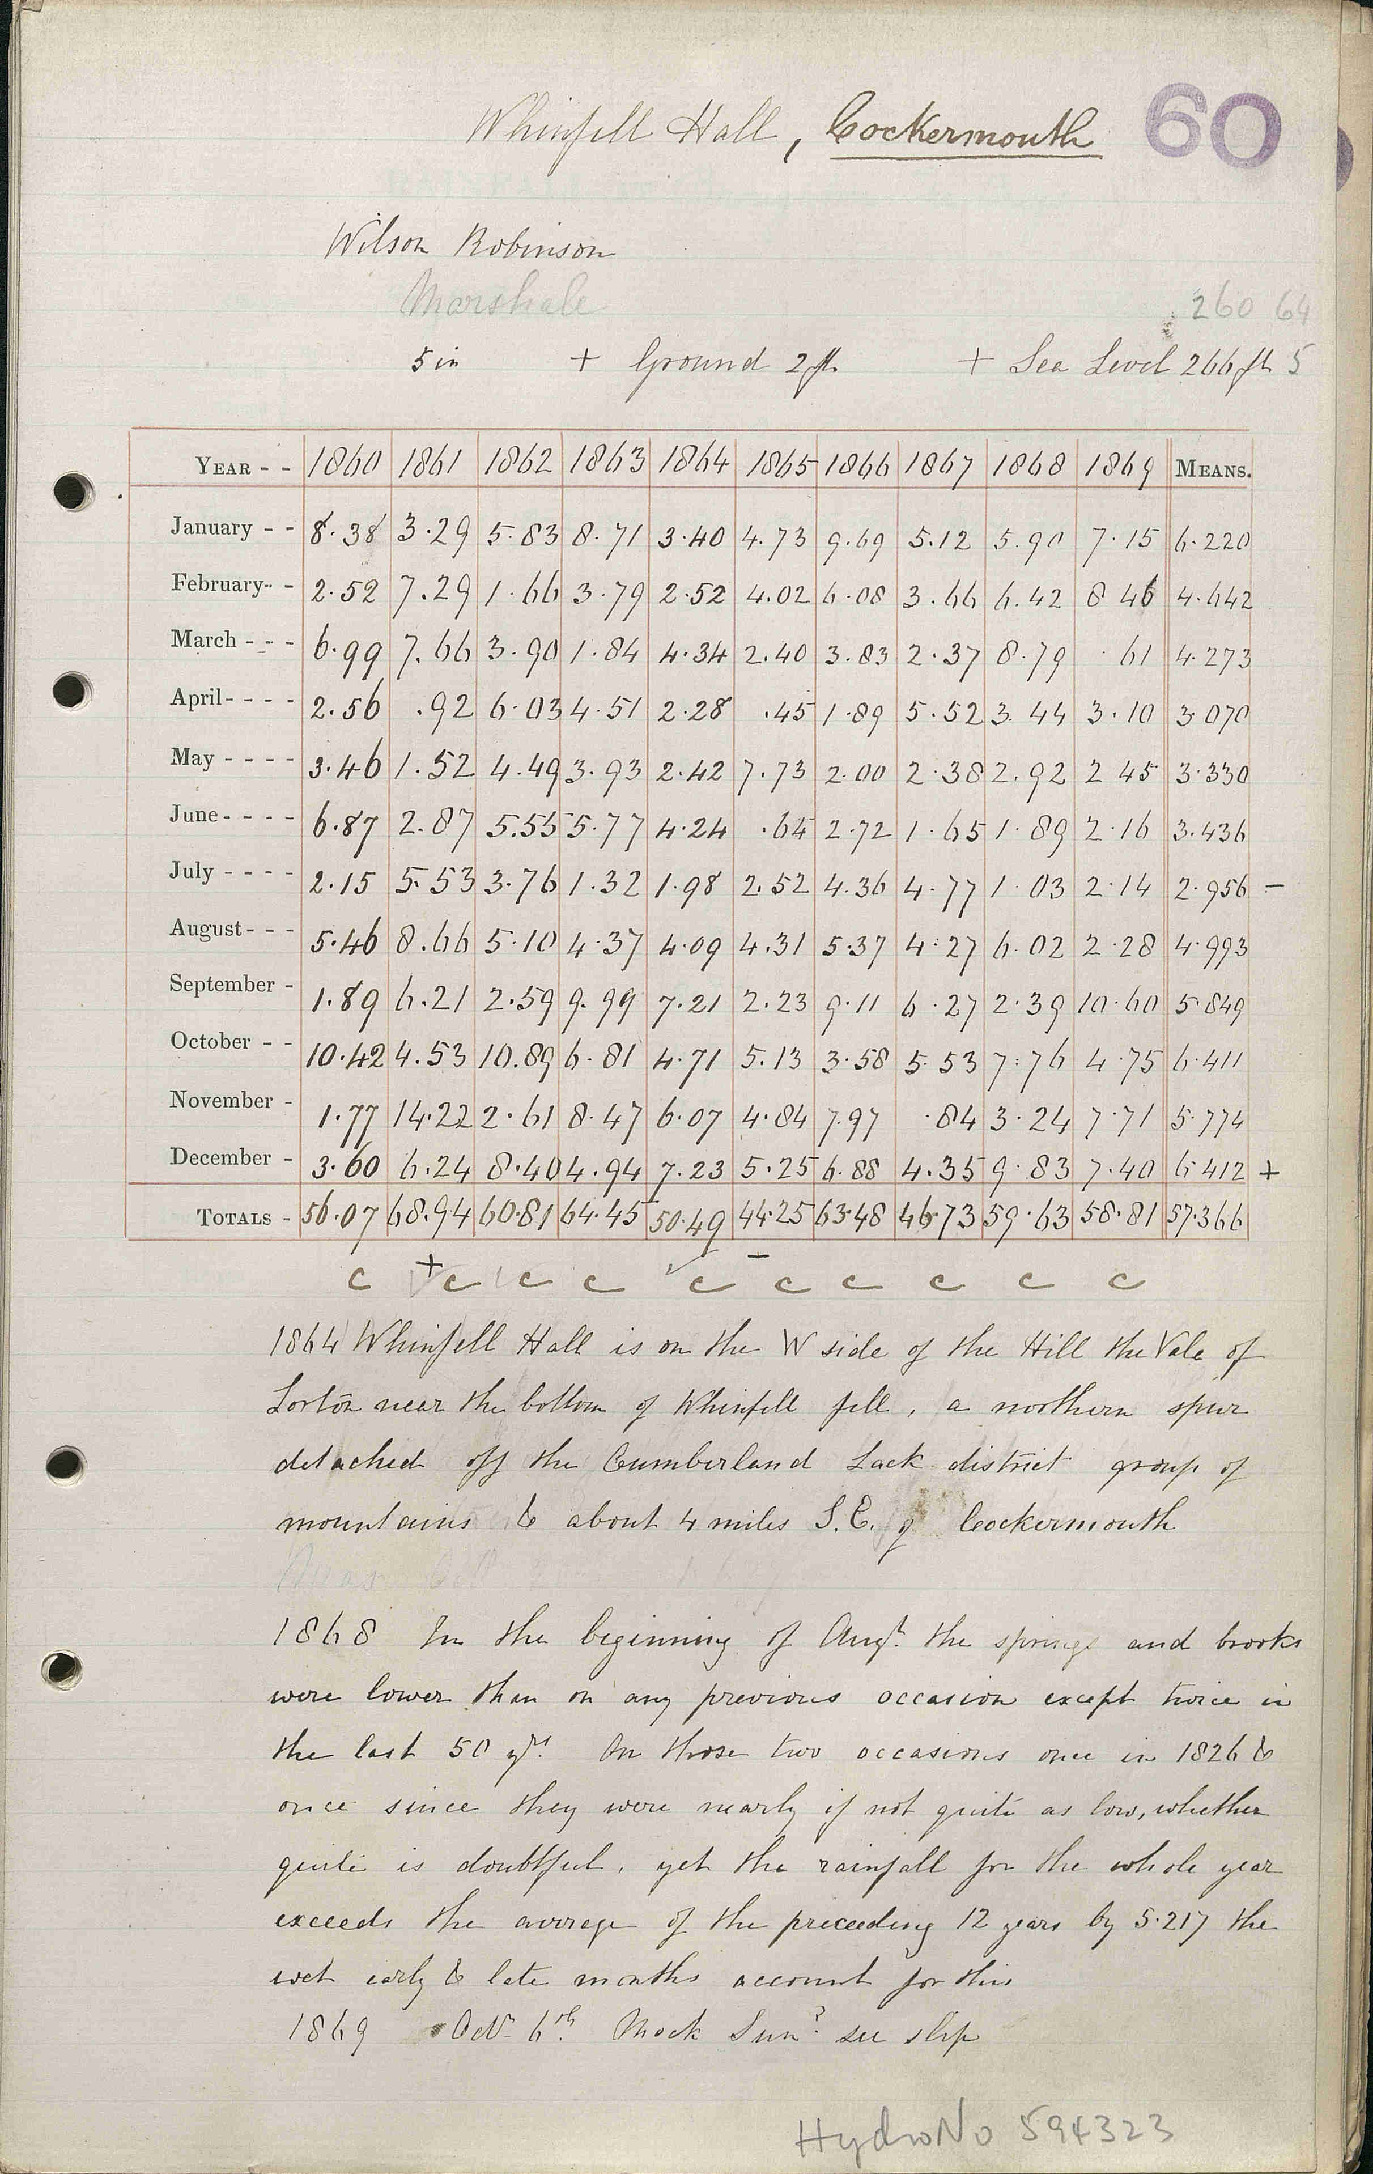 Whinfell Hall, Cockermouth 60
Wilson Robinson
Marshale
260 64
5 in + Ground 2 ft + Sea Level 266 ft 5
YEAR - - 1860 1861 1862 1863 1864 1865 1866 1867 1868 1869 MEANS.
January - - 8.38 3.29 5.83 8.71 3.40 4.73 9.69 5.12 5.90 7.15 6.220
February- - 2.52 7.29 1.66 3.79 2.52 4.02 6.08 3.66 6.42 8 46 4.642
March - - - 6.99 7.66 3.90 1.84 4.34 2.40 3.83 2.37 8.79 .61 4.273
April- - - - 2.56 .92 6.03 4.51 2.28 .45 1.89 5.52 3.44 3.10 3.070
May - - - - 3.46 1.52 4.49 3.93 2.42 7.73 2.00 2.38 2.92 2 45 3.330
June- - - - 6.87 2.87 5.55 5.77 4.24 .64 2.72 1.65 1.89 2.16 3.436
July - - - - 2.15 5.53 3.76 1.32 1.98 2.52 4.36 4.77 1.03 2.14 2.956 -
August- - - 5.46 8.66 5.10 4.37 4.09 4.31 5.37 4.27 6.02 2.28 4.993
September - 1.89 6.21 2.59 9.99 7.21 2.23 9.11 6.27 2.39 10.60 5.849
October - - 10.42 4.53 10.89 6.81 4.71 5.13 3.58 5.53 7.76 4.75 6.411
November - 1.77 14.22 2.61 8.47 6.07 4.84 7.97 .84 3.24 7.71 5.774
December - 3.60 6.24 8.40 4.94 7.23 5.25 6.88 4.35 9.83 7.40 6.412 +
TOTALS - 56.07 68.94 60.81 64.45 50.49 44.25 63.48 46.73 59.63 58.81 57.366
c + c c c c - c c c c c
1864 Whinfell Hall is on the W side of the Hill the Vale of
Lorton near the bottom of Whinfell fell, a northern spur
detached off the Cumberland Lack district group of
mountains & about 4 miles S.E. of Cockermouth
1868 In the beginning of Augt. the springs and brooks
were lower than on any previous occasion except twice in
the last 50 yrs. On those two occasions once in 1826 &
once since they were nearly if not quite as low, whether
quite is doubtful, yet the rainfall for the whole year
exceeds the average of the preceeding 12 years by 5.217 the
wet early & late months account for this
1869 Oct. 6th. Mock Sun? see slip
HydroNo 594323